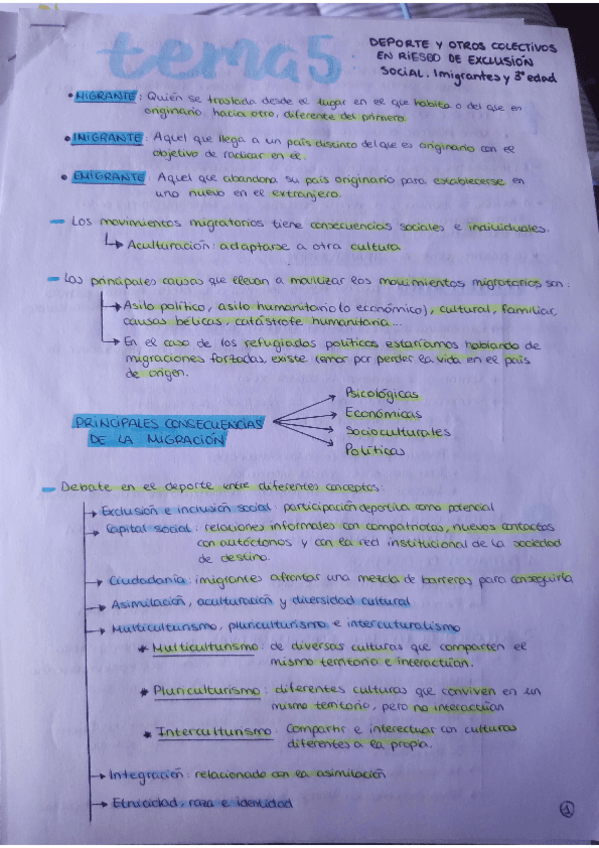 tema 5
DEPORTE Y OTROS COLECTIVOS
EN RIESGO DE EXCLUSIÓN
SOCIAL. Imigrantes y 3ª edad
• MIGRANTE: Quién se traslada desde el lugar en el que habita o del que en
originario, hacia otro, diferente del primero.
• INIGRANTE: Aquel que llega a un país distinto del que es originario con el
objetivo de radicar en él.
• EMIGRANTE: Aquel que abandona su país originario para establecerse en
uno nuevo en el extranjero.
- Los movimientos migratorios tiene consecuencias sociales e individuales.
↳ Aculturación: adaptarse a otra cultura
- Las principales causas que llevan a movilizar los movimientos migratorios son:
→ Asilo político, asilo humanitario (o económico), cultural, familiar,
causas bélicas, catástrofe humanitaria...
→ En el caso de los refugiados políticos estaríamos hablando de
migraciones forzadas, existe temor por perder la vida en el país
de origen.
PRINCIPALES CONSECUENCIAS
DE LA MIGRACIÓN
→ Psicológicas
→ Económicas
→ Socioculturales
→ Políticas
- Debate en el deporte entre diferentes conceptos:
→ Exclusión e inclusión social: participación deportiva como potencial
→ Capital social: relaciones informales con compatriotas, nuevos contactos
con autóctonos y con la red institucional de la sociedad
de destino.
→ Ciudadanía: imigrantes afrontar una mezcla de barreras para conseguirla
→ Asimilación, aculturación y diversidad cultural
→ Multiculturismo, pluriculturismo e interculturalismo
* Multiculturismo: de diversas culturas que comparten el
mismo territorio e interactúan.
* Pluriculturismo: diferentes culturas que conviven en un
mismo territorio, pero no interactúan
* Interculturismo: Compartir e interectuar con culturas
diferentes a la propia.
→ Integración: relacionado con la asimilación
→ Etnicidad, raza e identidad
1